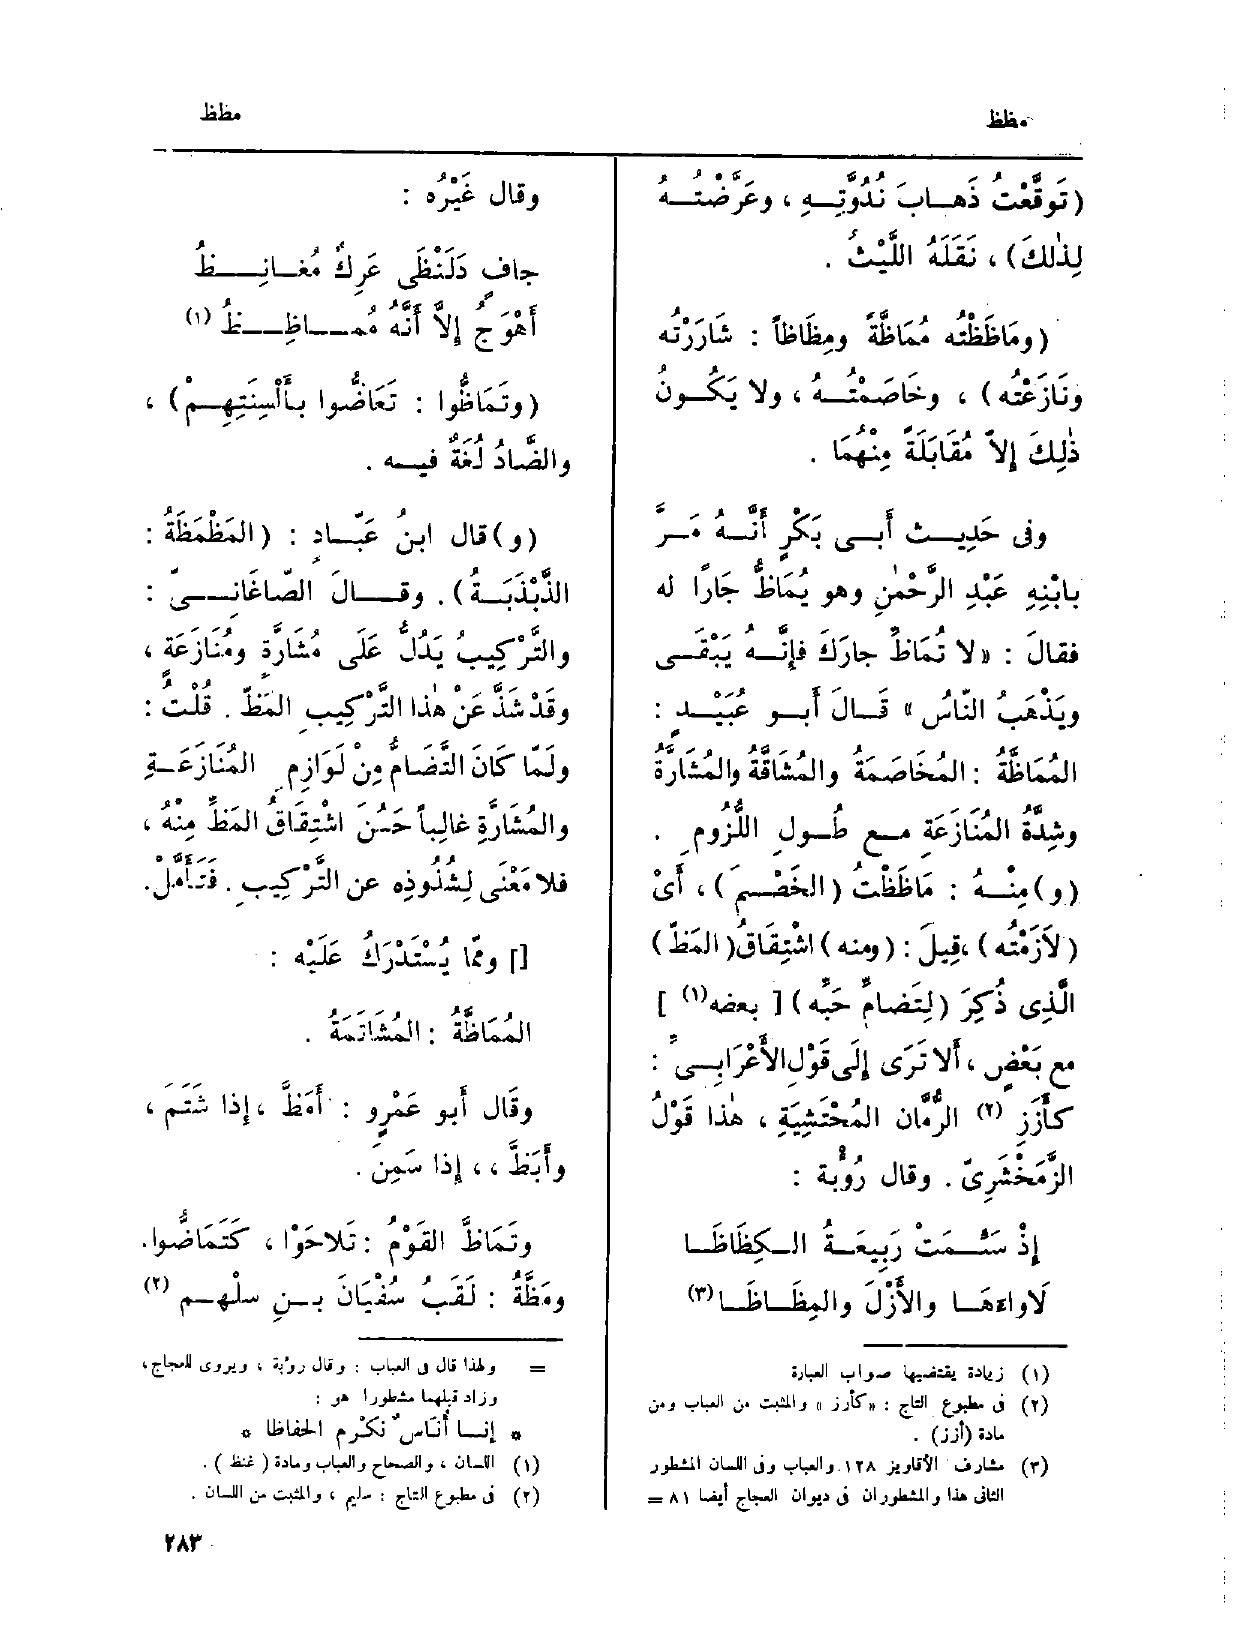 مظظ
مظظ
(تَوقَّعْتُ ذَهَابَ نُدُوَّتِهِ ، وعَرَّضْتُهُ
لِذٰلكَ) ، نَقَلَهُ اللَّيْثُ .
(ومَاظَظْته مُمَاظَّةً ومِظَاظاً : شَارَرْته
ونَازَعْته) ، وخَاصَمْتُهُ ، ولا يَكُونُ
ذٰلِكَ إلاّ مُقَابَلَةً مِنْهُمَا .
وفى حَدِيثِ أَبِى بَكْرٍ أَنَّهُ مَرَّ
بابْنِهِ عَبْدِ الرَّحْمٰنِ وهو يُمَاظُّ جَارًا له
فقالَ : «لا تُمَاظَّ جارَكَ فإِنَّهُ يَبْقَى
ويَذْهَبُ النَّاسُ » قَالَ أَبو عُبَيْدٍ :
المُمَاظَّةُ : المُخَاصَمَةُ والمُشَاقَّةُ والمُشَارَّةُ
وشِدَّةُ المُنَازَعَةِ مع طُولِ اللُّزُومِ .
(و) مِنْهُ : مَاظَظْتُ (الخَصْمَ) ، أَىْ
(لَازَمْتُه) ،قِيلَ : (ومنه) اشْتِقَاقُ (المَظّ)
الَّذِى ذُكِرَ (لِتَضَامِّ حَبِّه) [ بعضه(١) ]
مع بَعْضٍ ، أَلا تَرَى إلَى قَوْلِ الأَعْرَابِىّ :
كأَرَزِ (٢) الرُّمَّان المُحْتَشِيَةِ ، هٰذا قَوْلُ
الزَّمَخْشَرِىّ . وقال رُؤْبة :
إِذْ سَئِمَتْ رَبِيعَةُ الكِظَاظَا
لَاواءَهَا والأَزْلَ والمِظَاظَا(٣)
(١) زيادة يقتضيها صواب العبارة
(٢) فى مطبوع التاج : «كأرز » والمثبت من العباب ومن
مادة (أزز) .
(٣) مشارف الأقاويز ١٢٨ والعباب وفى اللسان المشطور
الثانى هذا والمشطوران فى ديوان العجاج أيضا ٨١ =
وقال غَيْرُه :
جافٍ دَلَنْظَى عَرِكٌ مُغَانِظُ
أَهْوَجُ إلاَّ أَنَّهُ مُمَاظِظُ (١)
(وتَمَاظُّوا : تَعَاضُّوا بأَلْسِنَتِهِمْ) ،
والضَّادُ لُغَةٌ فيه .
(و) قال ابنُ عَبّادٍ : (المَظْمَظَةُ :
الذَّبْذَبَةُ) . وقالَ الصّاغَانِىّ :
والتَّرْكِيبُ يَدُلُّ عَلَى مُشَارَّةٍ ومُنَازَعَة ،
وقَدْ شَذَّ عَنْ هٰذا التَّرْكِيبِ المَظّ . قُلْتُ :
ولَمّا كَانَ التَّضَامُّ مِنْ لَوَازِمِ المُنَازَعَةِ
والمُشَارَّةِ غالِباً حَسُنَ اشْتِقَاقُ المَظِّ مِنْهُ ،
فلا مَعْنَى لِشُذُوذِه عن التَّرْكِيبِ . فَتَأَمَّلْ.
[] وممّا يُسْتَدْرَكُ عَلَيْه :
المُمَاظَّةُ : المُشَاتَمَةُ .
وقَال أَبو عَمْرٍو : أَمَظَّ ،إذا شَتَمَ ،
وأَبَظَّ ، ، إذا سَمِنَ .
وتَمَاظَّ القَوْمُ : تَلاحَوْا ، كَتَمَاضُّوا.
ومَظَّةُ : لَقَبُ سُفْيَانَ بنِ سلْهِم (٢)
= ولهذا قال فى العباب : وقال رؤبة ، ويروى للعجاج،
وزاد قبلهما مشطورا هو :
* إنا أُنَاسٌ نَكْرم الحفاظا *
(١) اللسان ، والصحاح والعباب ومادة ( غنظ ) .
(٢) فى مطبوع التاج : سليم ، والمثبت من اللسان .
٢٨٣